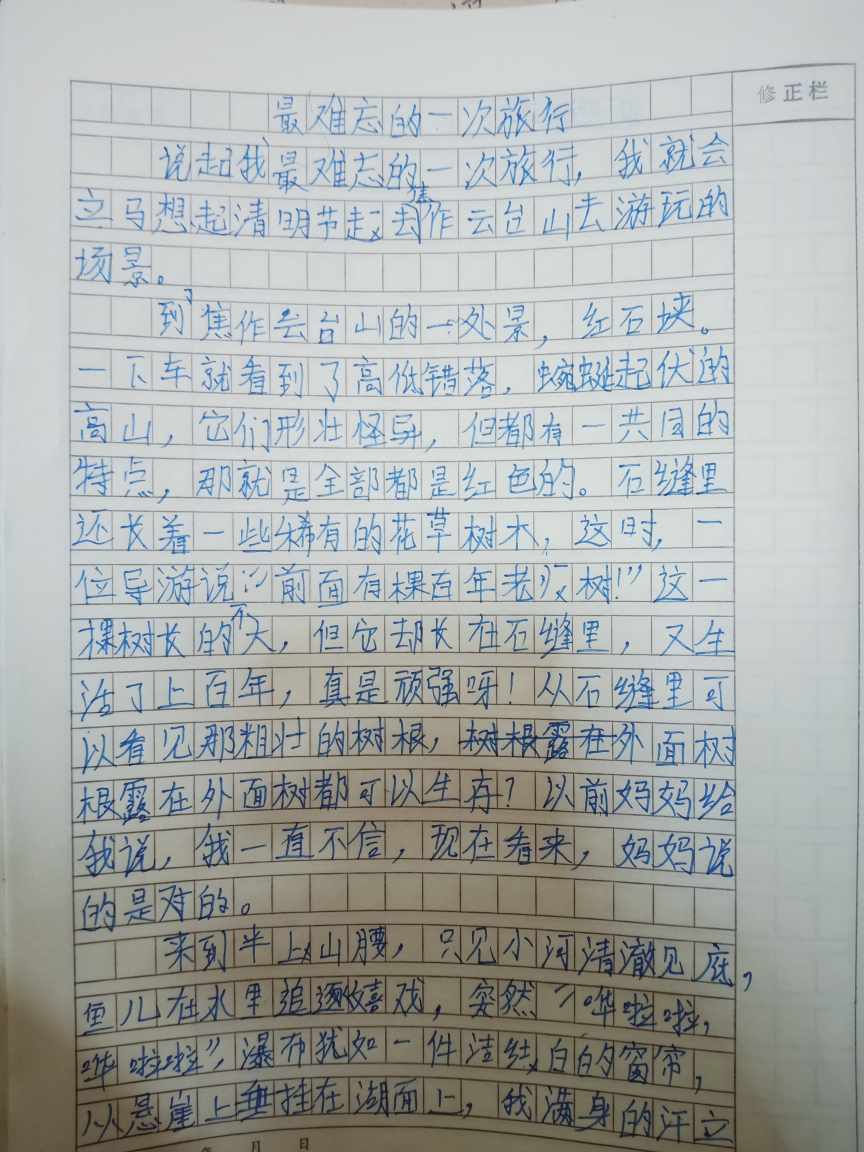 修正栏
最难忘的一次旅行
说起我最难忘的一次旅行，我就会
立马想起清明节去焦作云台山去游玩的
场景。
到了焦作云台山的一处景，红石埉。
一下车就看到了高低错落，蜿蜒起伏的
高山，它们形壮怪异，但都有一共同的
特点，那就是全部都是红色的。石缝里
还长着一些稀有的花草树木，这时，一
位导游说：“前面有棵百年老树！”这一
棵树长的不大，但它却长在石缝里，又生
活了上百年，真是顽强呀！从石缝里可
以看见那粗壮的树根，树根露在外面树
根露在外面树都可以生存？以前妈妈给
我说，我一直不信，现在看来，妈妈说
的是对的。
来到半山腰，只见小河清澈见底，
鱼儿在水里追逐嬉戏，突然“哗啦啦，
哗啦啦”，瀑布犹如一件洁白的窗帘，
从悬崖上垂挂在湖面上，我满身的汗立
年 月 日